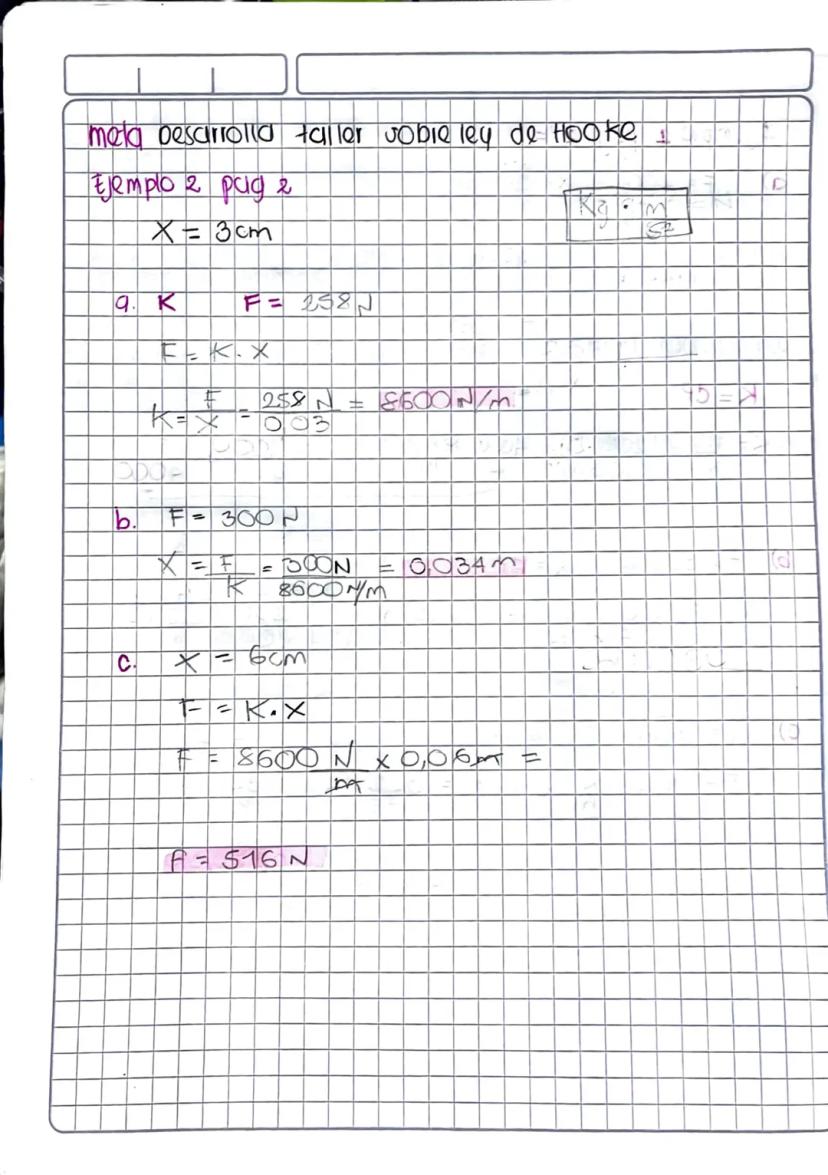 meta Desarrolla taller sobre ley de Hooke 1
Ejemplo 2 pag 2
Kg · m/s²
X = 3cm
a. K F = 258 N
F = K . X
K = F/X = 258 N/0,03 = 8600 N/m
b. F = 300 N
X = F/K = 300N/8600 N/m = 0,034 m
c. X = 6cm
F = K . X
F = 8600 N/m x 0,06 m =
A = 516 N